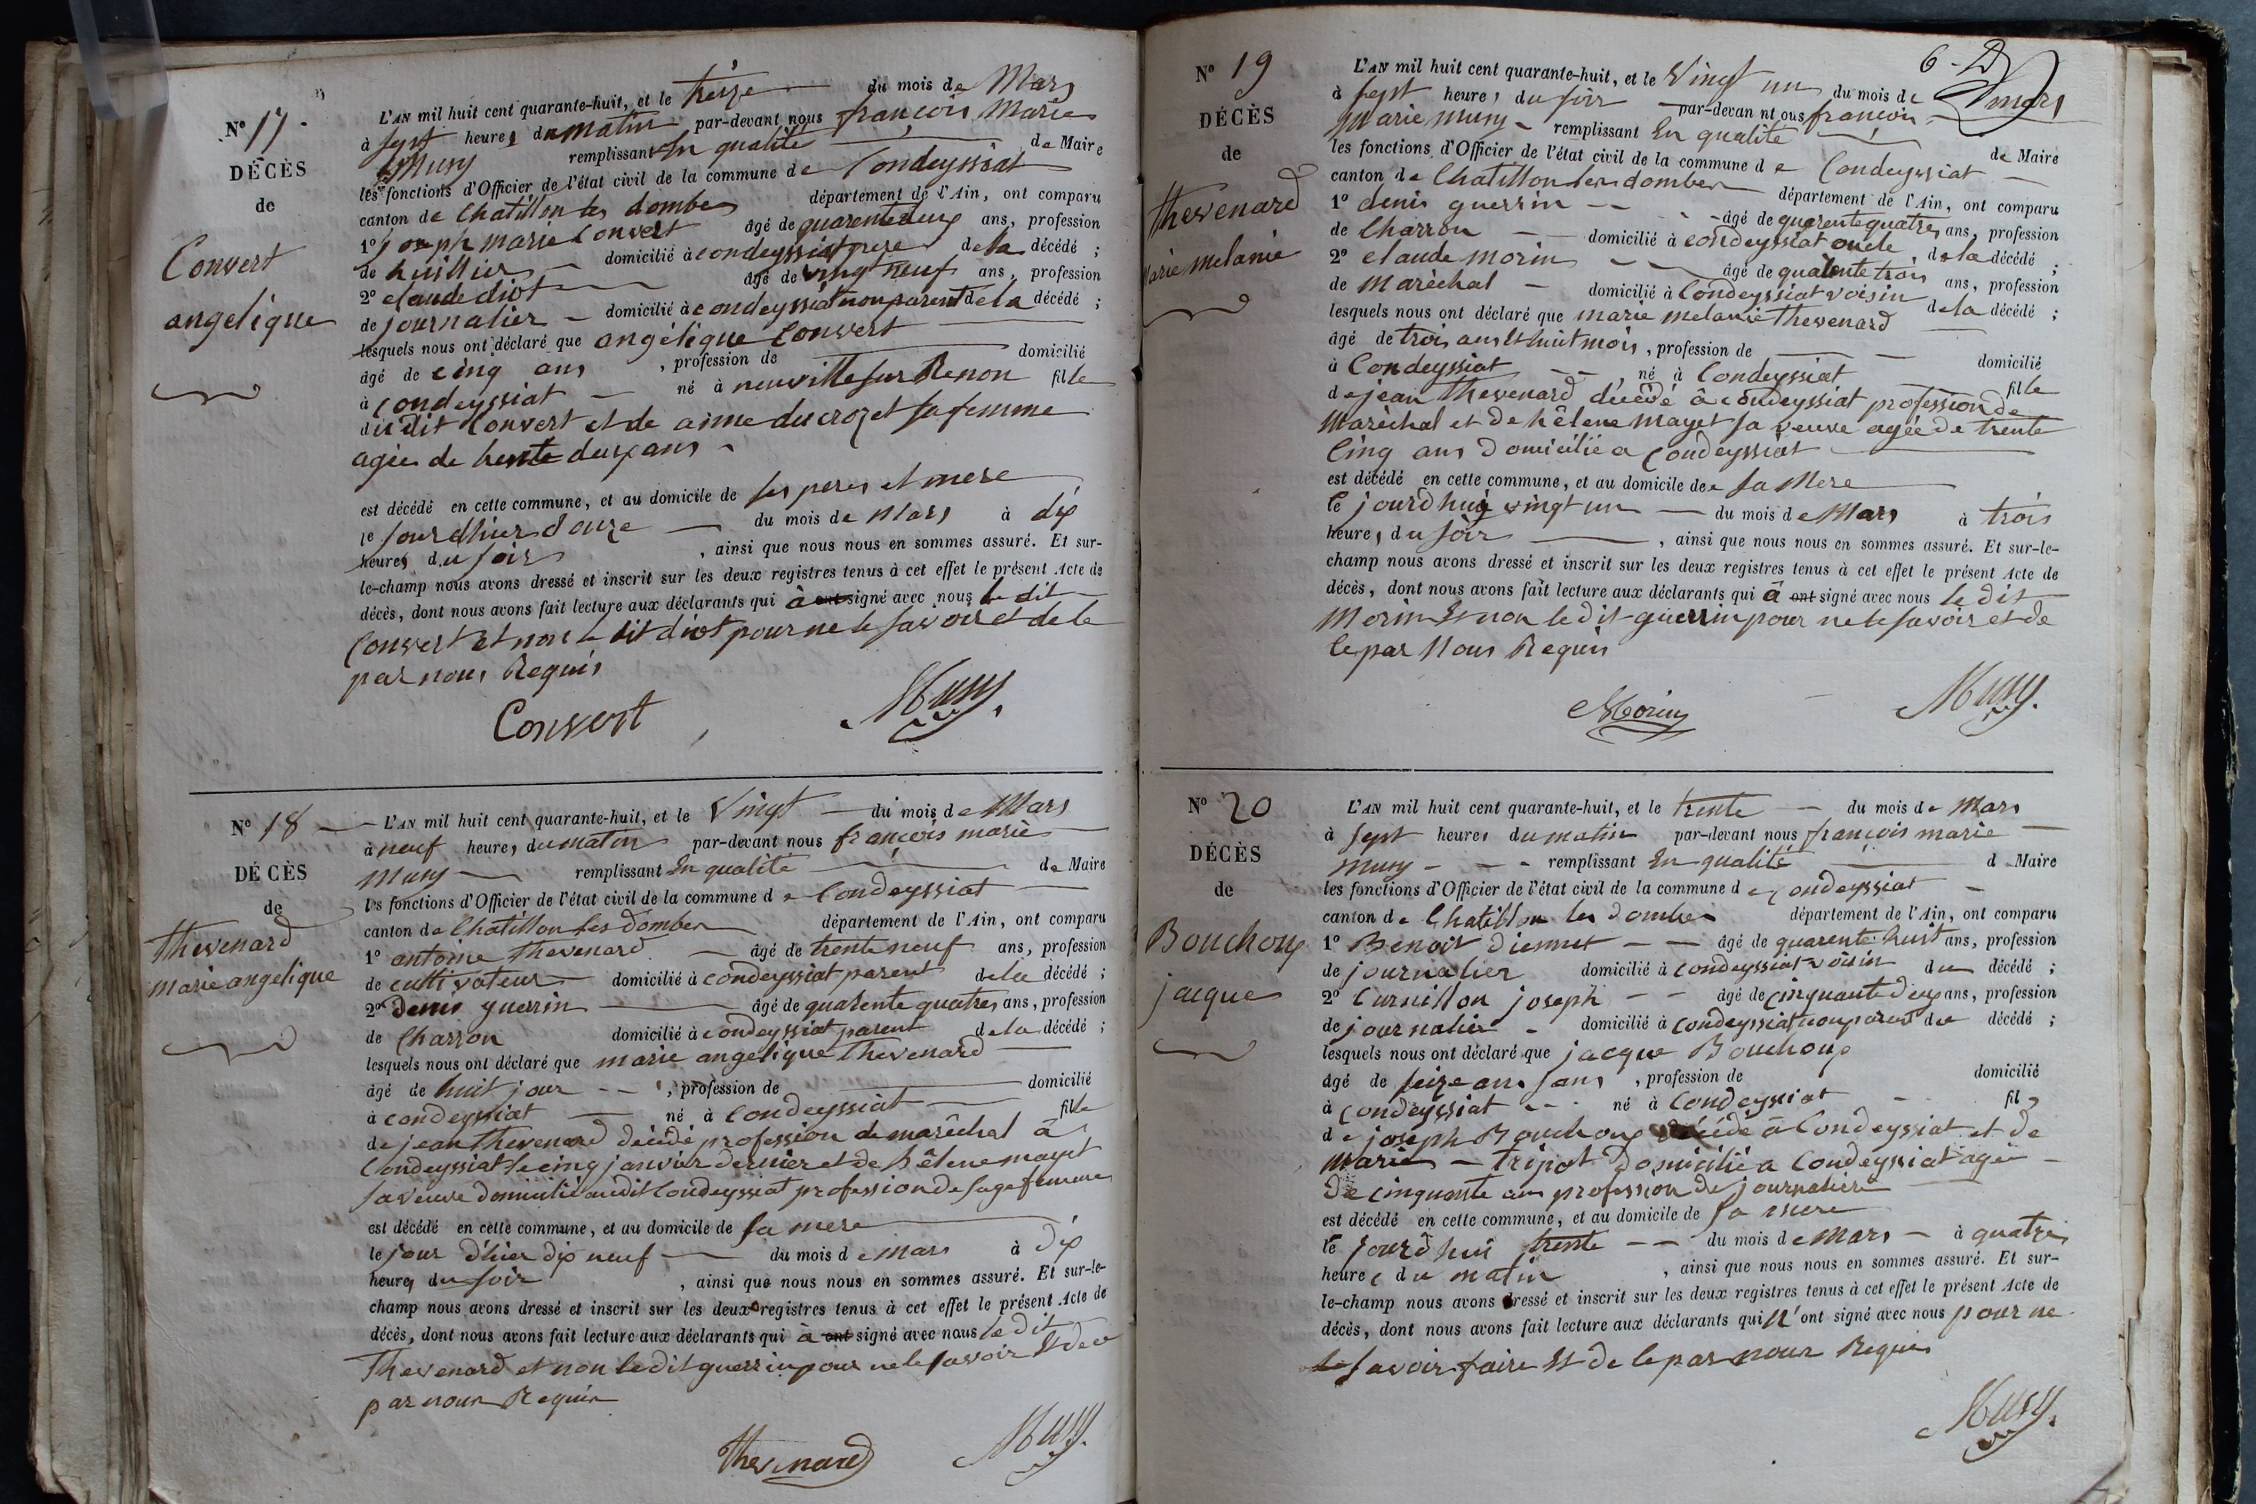 N° 17.
DÉCÈS
de
Convert
angelique
L'AN mil huit cent quarante-huit, et le treize du mois de Mars
à sept heures du matin par-devant nous françois Marie
Musy remplissant En qualité de Maire
les fonctions d'Officier de l'état civil de la commune de Condeyssiat
canton de Chatillon les dombes département de l'Ain, ont comparu
1° joseph marie Convert âgé de quarentedeux ans, profession
de huissier domicilié à condeyssiat pere de la décédé ;
2° claude diot âgé de vingt neuf ans, profession
de journalier domicilié à condeyssiat non parent de la décédé ;
lesquels nous ont déclaré que angélique Convert
âgé de cinq ans , profession de domicilié
à condeyssiat né à neuville sur Renon fille
du dit Convert et de anne du crozet sa femme
agée de trente deux ans
est décédé en cette commune, et au domicile de ses peres et mere
le jour dhier douze du mois de Mars à dix
heures du soir , ainsi que nous nous en sommes assuré. Et sur-
le-champ nous avons dressé et inscrit sur les deux registres tenus à cet effet le présent Acte de
décès, dont nous avons fait lecture aux déclarants qui à ont signé avec nous le dit
Convert et non le dit diot pour ne le savoir et de le
par nous Requis
Convert Musy
N° 18
DÉCÈS
de
thevenard
marie angelique
L'AN mil huit cent quarante-huit, et le Vingt du mois de Mars
à neuf heures du matin par-devant nous françois marie
Musy remplissant En qualité de Maire
les fonctions d'Officier de l'état civil de la commune de Condeyssiat
canton de Chatillon les Dombes département de l'Ain, ont comparu
1° antoine thevenard âgé de trente neuf ans, profession
de cultivateur domicilié à condeyssiat parent de la décédé ;
2° denis guerrin âgé de quarente quatres ans, profession
de Charron domicilié à condeyssiat parent de la décédé ;
lesquels nous ont déclaré que marie angelique thevenard
âgé de huit jour , profession de domicilié
à condeyssiat né à condeyssiat fille
de jean thevenard décédé profession de marêchal â
Condeyssiat le cinq janvier dernier et de hêlene mayet
sa veuve domicilié audit Condeyssiat profession de sage femme
est décédé en cette commune, et au domicile de sa mere
le jour d'hier dix neuf du mois de mars à dix
heures du soir , ainsi que nous nous en sommes assuré. Et sur-le-
champ nous avons dressé et inscrit sur les deux registres tenus à cet effet le présent Acte de
décès, dont nous avons fait lecture aux déclarants qui à ont signé avec nous le dit
Thevenard et non le dit guerrin pour ne le savoir Et de ce
par nous Requis
thevenard Musy
6 -
N° 19
DÉCÈS
de
thevenard
Marie melanie
L'AN mil huit cent quarante-huit, et le Vingt un du mois de mars
à sept heures du soir par-devant nous françois
Marie musy remplissant En qualité de Maire
les fonctions d'Officier de l'état civil de la commune de Condeyssiat
canton de Chatillon les dombes département de l'Ain, ont comparu
1° denis guerrin âgé de quarente quatres ans, profession
de Charron domicilié à condeyssiat oncle de la décédé ;
2° claude morin âgé de quarente trois ans, profession
de Maréchal domicilié à Condeyssiat voisin de la décédé ;
lesquels nous ont déclaré que marie melanie thevenard
âgé de trois ans Et huit mois , profession de domicilié
à Condeyssiat né à Condeyssiat fille
de jean thevenard décédé â condeyssiat profession de
Maréchal et de hêlene mayet sa veuve agée de trente
Cinq ans Domicilié a Condeyssiat
est décédé en cette commune, et au domicile de sa Mere
le jourd'hui vingt un du mois de Mars à trois
heures du soir , ainsi que nous nous en sommes assuré. Et sur-le-
champ nous avons dressé et inscrit sur les deux registres tenus à cet effet le présent Acte de
décès, dont nous avons fait lecture aux déclarants qui â ont signé avec nous le dit
Morin Et non le dit guerrin pour ne le savoir et de
le par Nous Requis
Morin Musy
N° 20
DÉCÈS
de
Bouchoux
jacque
L'AN mil huit cent quarante-huit, et le trente du mois de Mars
à sept heures du matin par-devant nous françois marie
musy remplissant En qualité d Maire
les fonctions d'Officier de l'état civil de la commune de Condeyssiat
canton de Chatillon les dombes département de l'Ain, ont comparu
1° Benoit diennet âgé de quarente huit ans, profession
de journalier domicilié à condeyssiat voisin du décédé ;
2° Curnillon joseph âgé de cinquante deux ans, profession
de journalier domicilié à condeyssiat non parent du décédé ;
lesquels nous ont déclaré que jacque Bouchoux
âgé de seize ans sans , profession de domicilié
à condeyssiat né à Condeyssiat fils
de joseph Bouchoux décédé â Condeyssiat et de
marie tripot domicilié a Condeyssiat agée
de cinquante ans profession de journaliere
est décédé en cette commune, et au domicile de sa mere
le jourd'hui trente du mois de Mars à quatres
heures du matin , ainsi que nous nous en sommes assuré. Et sur-
le-champ nous avons dressé et inscrit sur les deux registres tenus à cet effet le présent Acte de
décès, dont nous avons fait lecture aux déclarants qui N'ont signé avec nous pour ne
le savoir faire Et de le par nous Requis
Musy